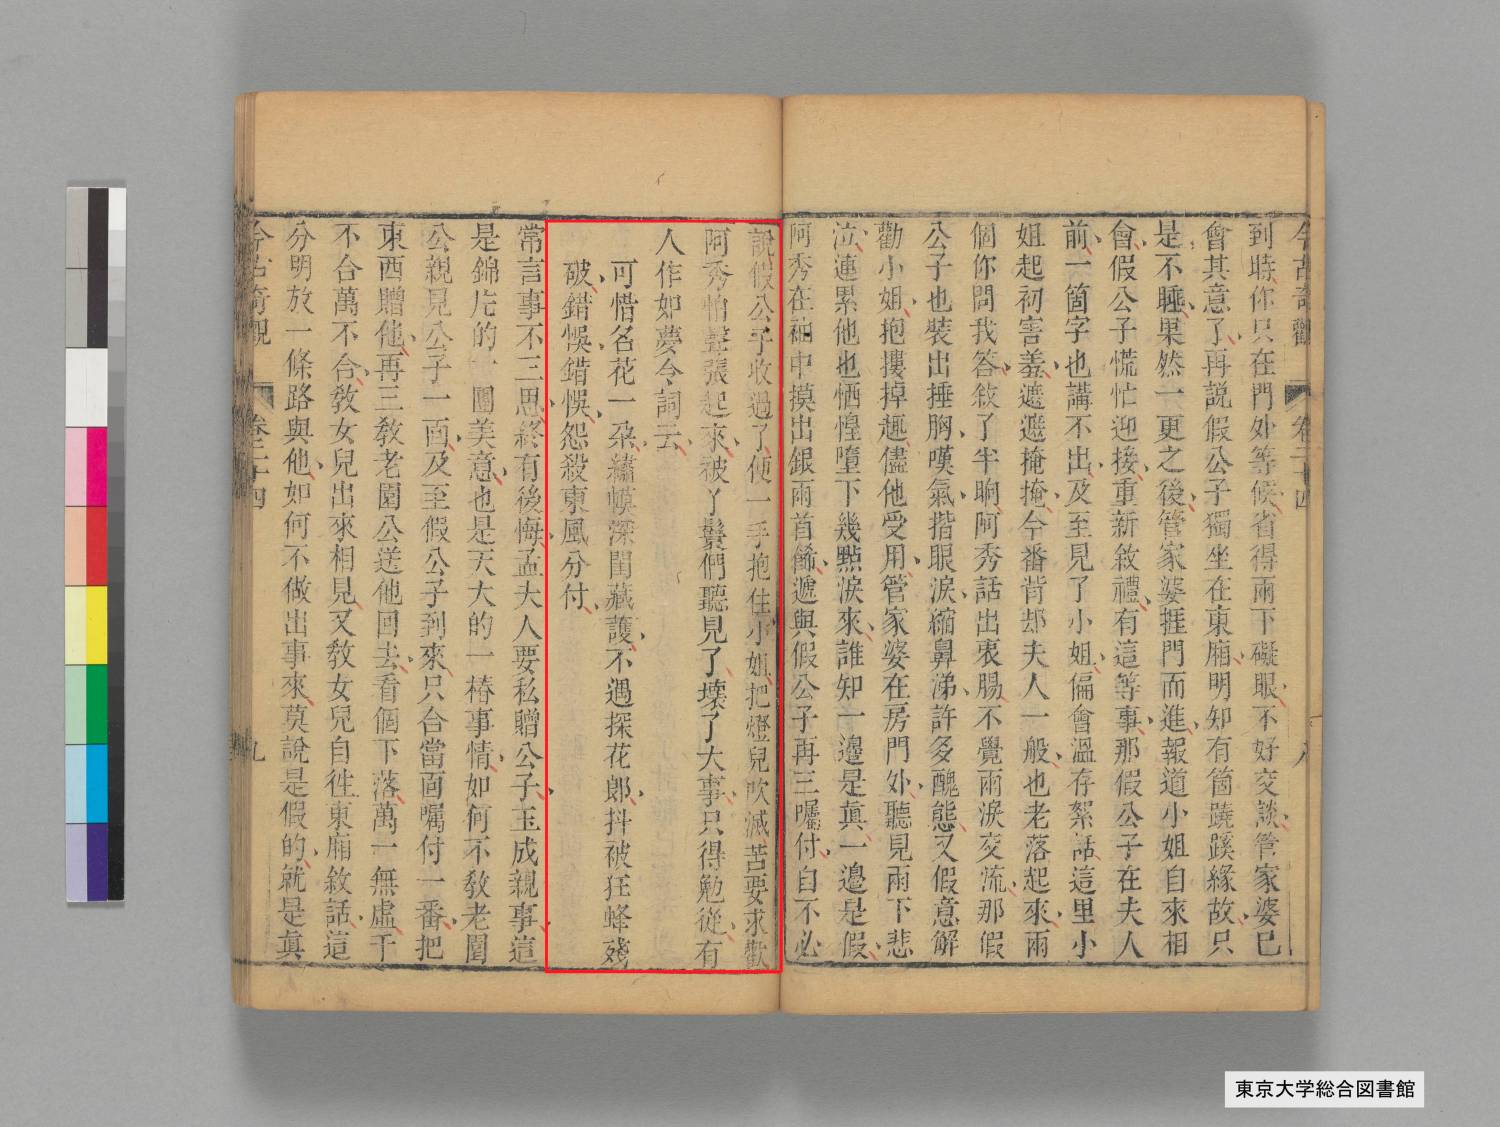 今古奇觀
卷二十四
八
到時你只在門处等候省得兩下礙眼不好交談管家婆已
會其意了再説假公子獨坐在東廂明知有箇蹺蹊緣故只
是不睡果然一更之後管家婆捱門而進報道小姐自來相
會假公子慌忙迎接重新敘禮有這等事那假公子在夫人
前一箇字也講不出及至見了小姐偏會溫存絮話這里小
姐起初害羞遮遮掩掩今番背却夫人一般也老落起來兩
個你問我答敘了半晌阿秀話出衷腸不覺兩淚交流那假
公子也裝出捶胸嘆氣揩眼淚縮鼻涕許多醜態又假意解
勸小姐抱摟掉趣儘他受用管家婆在房門外聽見兩下悲
泣連累他也恓惶墮下幾點淚來誰知一邊是真一邊是假
阿秀在袖中摸出銀兩首餙遞與假公子再三囑付自不必
說假公子收過了便一手抱住小姐把燈兒吹滅苦要求歡
阿秀怕聲張起來被丫鬟們聽見了壞了大事只得勉從有
人作如夢令詞云
可惜名花一朶繡幙深閨藏護不遇探花郎抖被狂蜂殘
破錯悞錯悞怨殺東風分付
常言事不三思終有後悔孟夫人要私贈公子玉成親事這
是錦片的一團美意也是天大的一樁事情如何不教老園
公親見公子一面及至假公子到來只合當面囑付一番把
東西贈他再三教老園公送他回去看個下落萬一無虛千
不合萬不合教女兒出來相見又教女兒自徃東廂敘話這
分明放一條路與他如何不做出事來莫說是假的就是真
今古奇觀
卷二十四
九
東京大学総合図書館